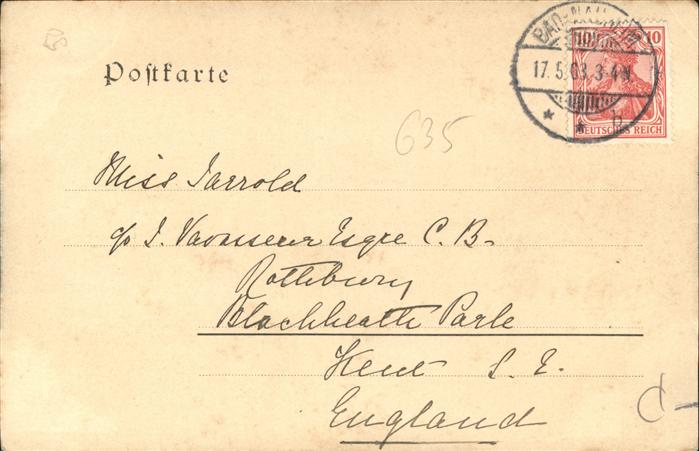 BAD-NAUHEIM
17.5.03.3-4N.
b
10 10
DEUTSCHES REICH
Postkarte
635
Miss Jarrold
c/o J. Vavasseur Esqre C. B.
Rothbury
Blackheath Park
Kent S. E.
England